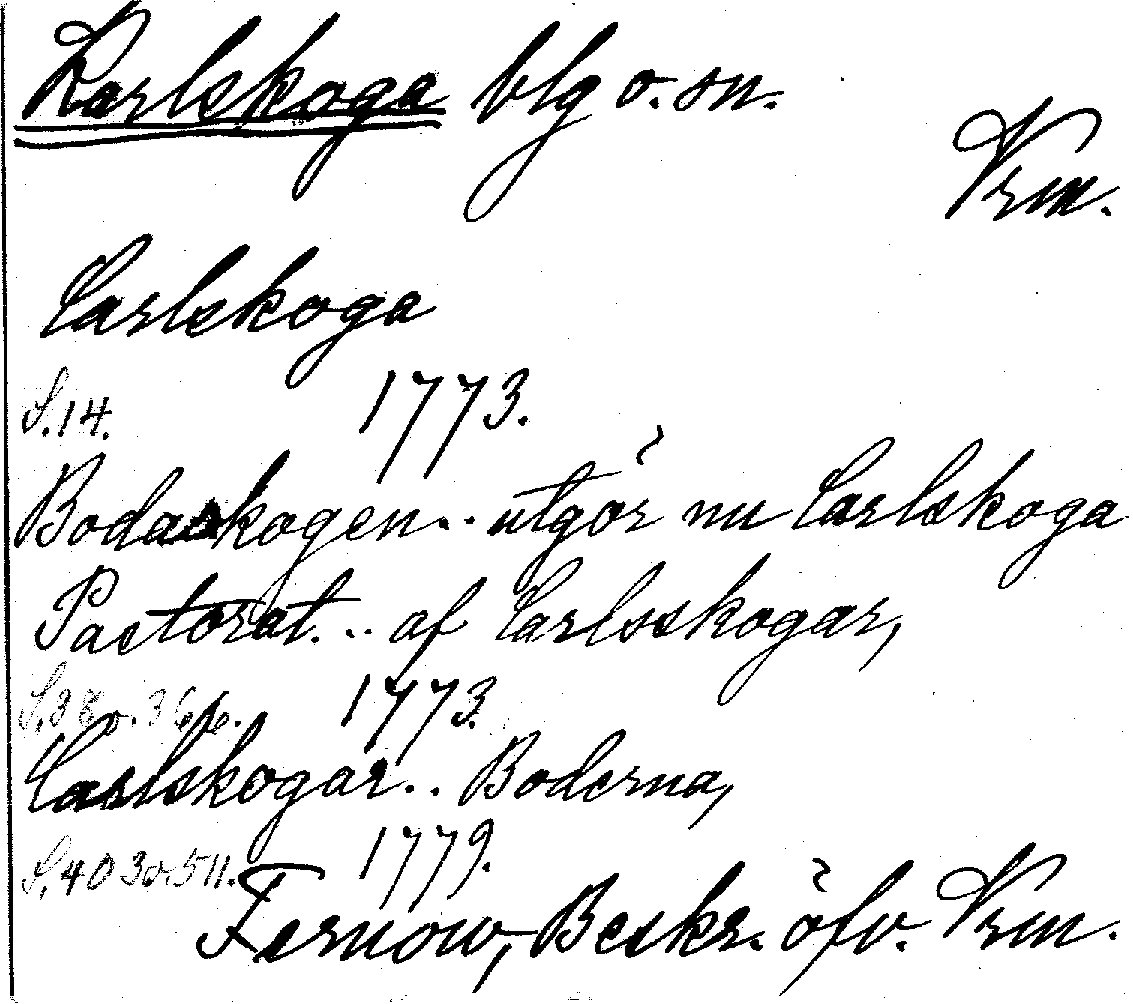 Karlskoga blg o. sn.
Vrm.
Carlskoga
S. 14. 1773.
Bodaskogen .. utgör nu Carlskoga
Pastorat. .. af Carlsskogar,
S. 38 o. 366. 1773.
Carlskogar .. Boderna,
S. 403 o. 511. 1779.
Fernow, Beskr. öfv. Vrm.